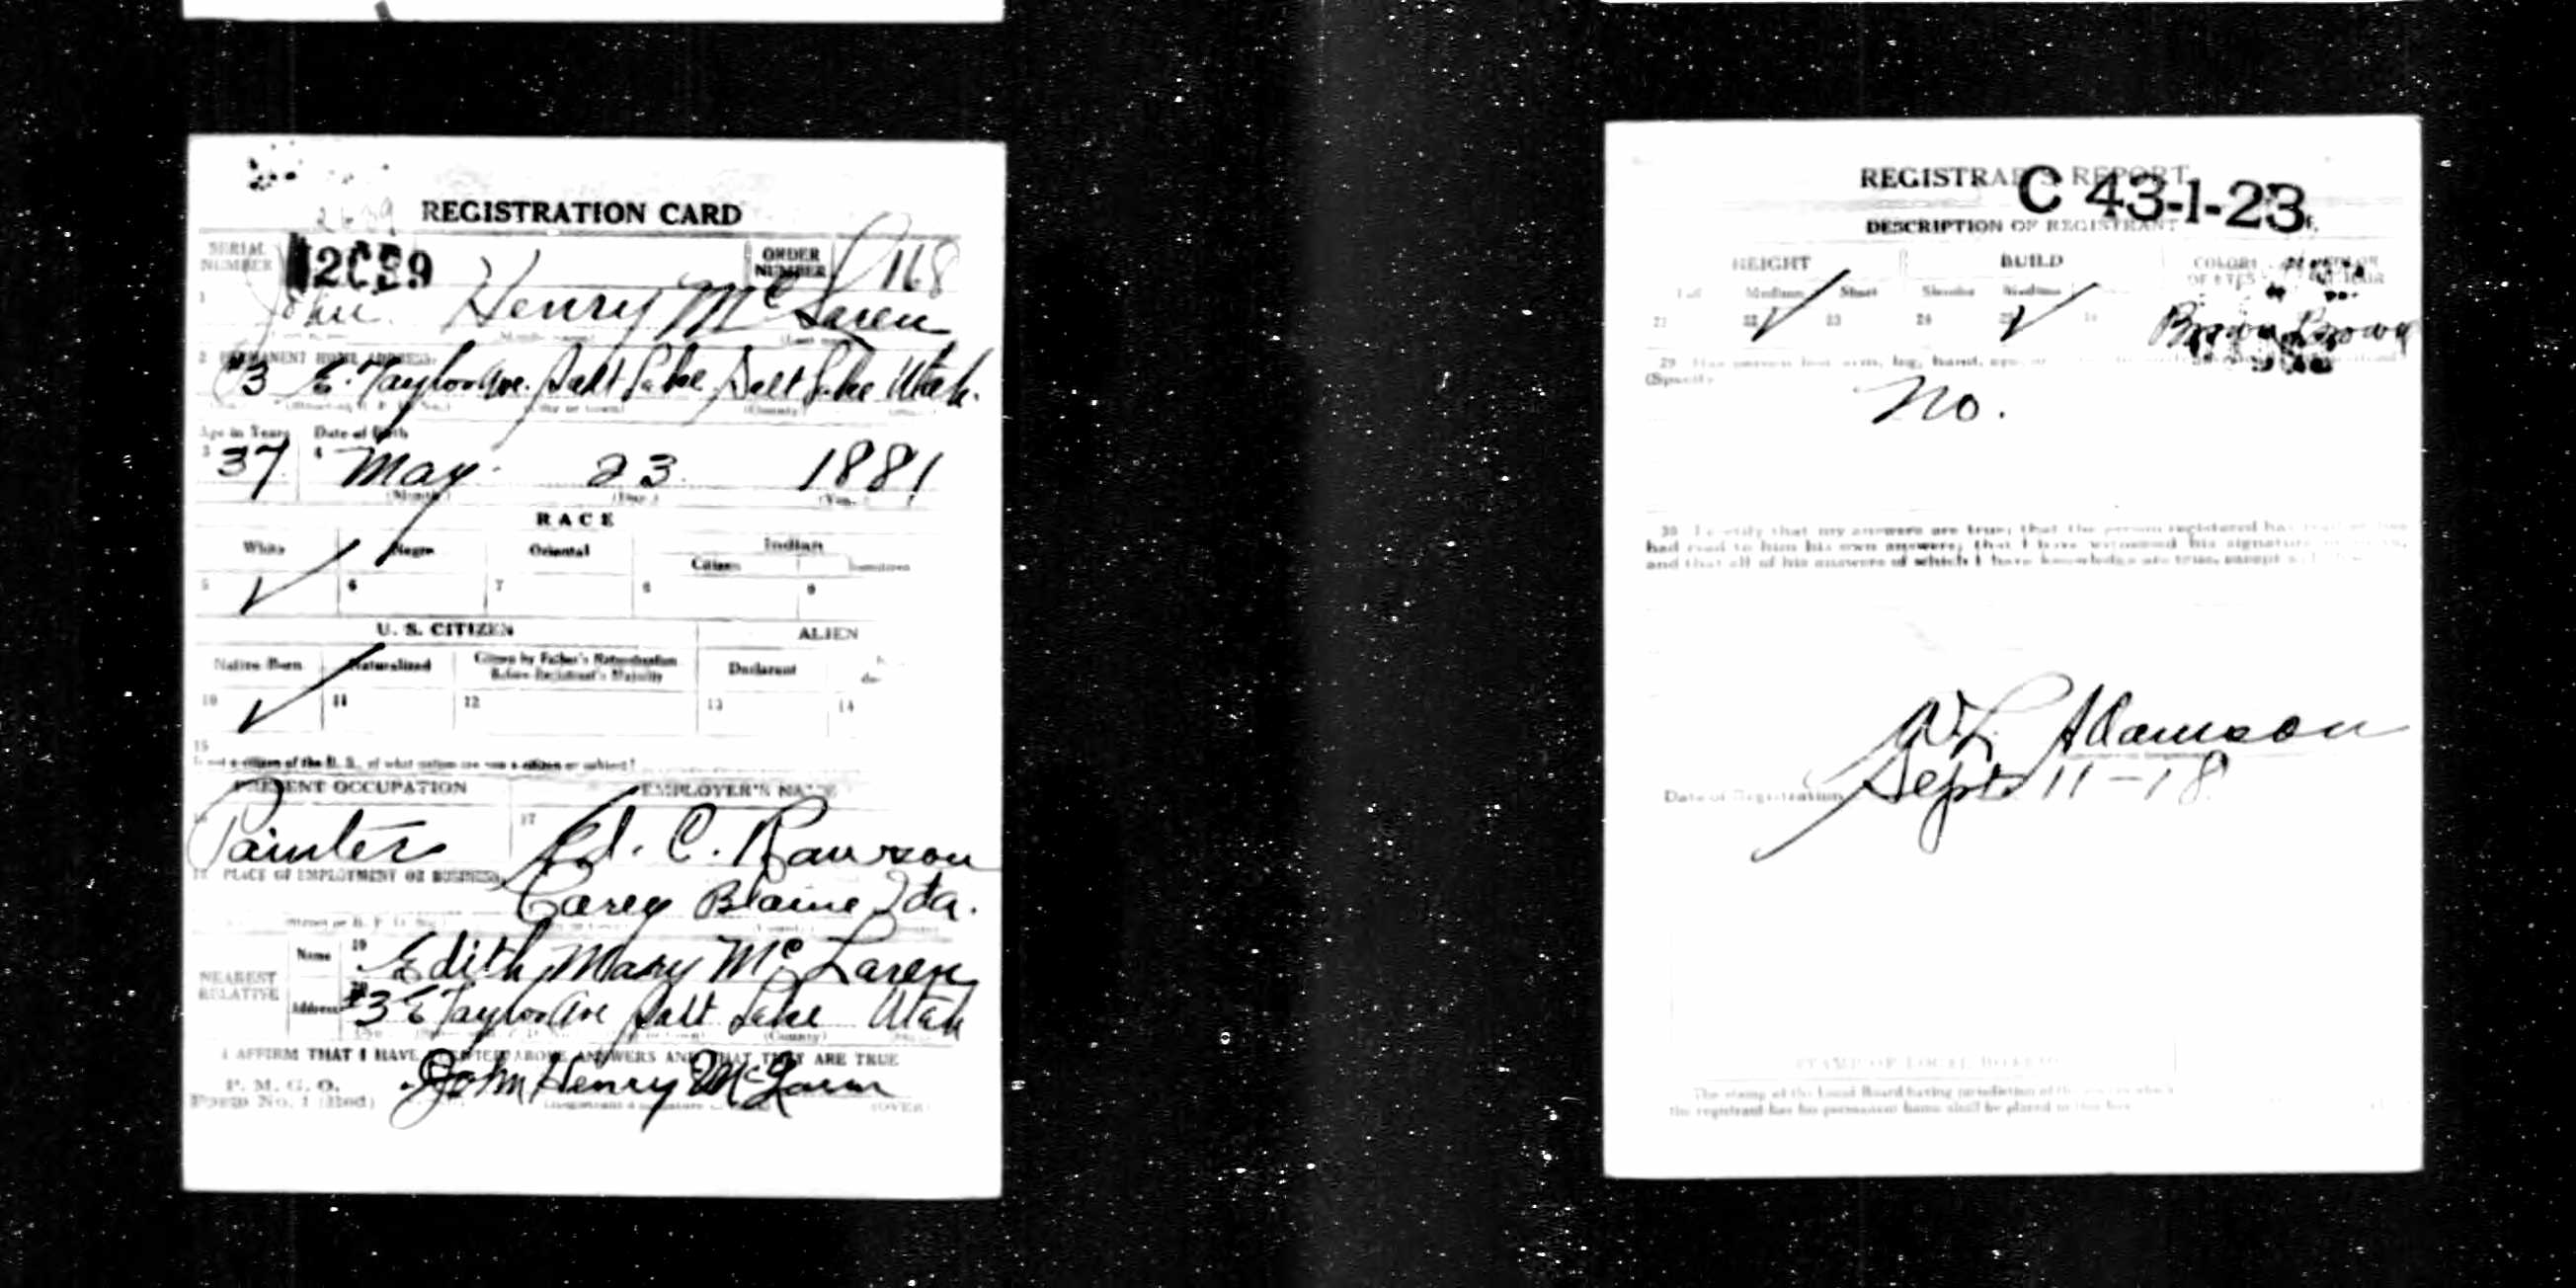 REGISTRATION CARD
SERIAL NUMBER
ORDER NUMBER 168
1 John Henry McLaren
2 PERMANENT HOME ADDRESS:
#3 E. Taylor Ave. Salt Lake, Salt Lake Utah.
Age in Years Date of Birth
3 37 4 May 23 1881
(Month) (Day) (Year)
RACE
White Negro Oriental Indian
Citizen
5 ✓ 6 7 8 9
U. S. CITIZEN ALIEN
Native Born Naturalized Citizen by Father's Naturalization Before Registrant's Majority Declarant
10 ✓ 11 12 13 14
15
If not a citizen of the U. S., of what nation are you a citizen or subject?
PRESENT OCCUPATION EMPLOYER'S NAME
16 Painter 17 Ed. C. Rawson
18 PLACE OF EMPLOYMENT OR BUSINESS
Carey Blaine Ida.
NEAREST RELATIVE
Name 19 Edith Mary McLaren
Address 20 #3 E Taylor Ave Salt Lake Utah
(County)
I AFFIRM THAT I HAVE VERIFIED ABOVE ANSWERS AND THAT THEY ARE TRUE
P. M. G. O.
Form No. 1 (Red)
John Henry McLaren
(OVER)
REGISTRAR'S REPORT
C 43-1-23
DESCRIPTION OF REGISTRANT
HEIGHT BUILD COLOR OF EYES COLOR OF HAIR
Tall Medium Short Slender Medium
21 22 ✓ 23 24 25 ✓ 26 Brown Brown
29 Has person lost arm, leg, hand, eye,
(Specify)
No.
30 I certify that my answers are true; that the person registered has read or has
had read to him his own answers; that I have witnessed his signature
and that all of his answers of which I have knowledge are true, except
Adamson
Date of Registration Sept 11-18
STAMP OF LOCAL BOARD
The stamp of the Local Board having jurisdiction of the area in which
the registrant has his permanent home shall be placed in this box.